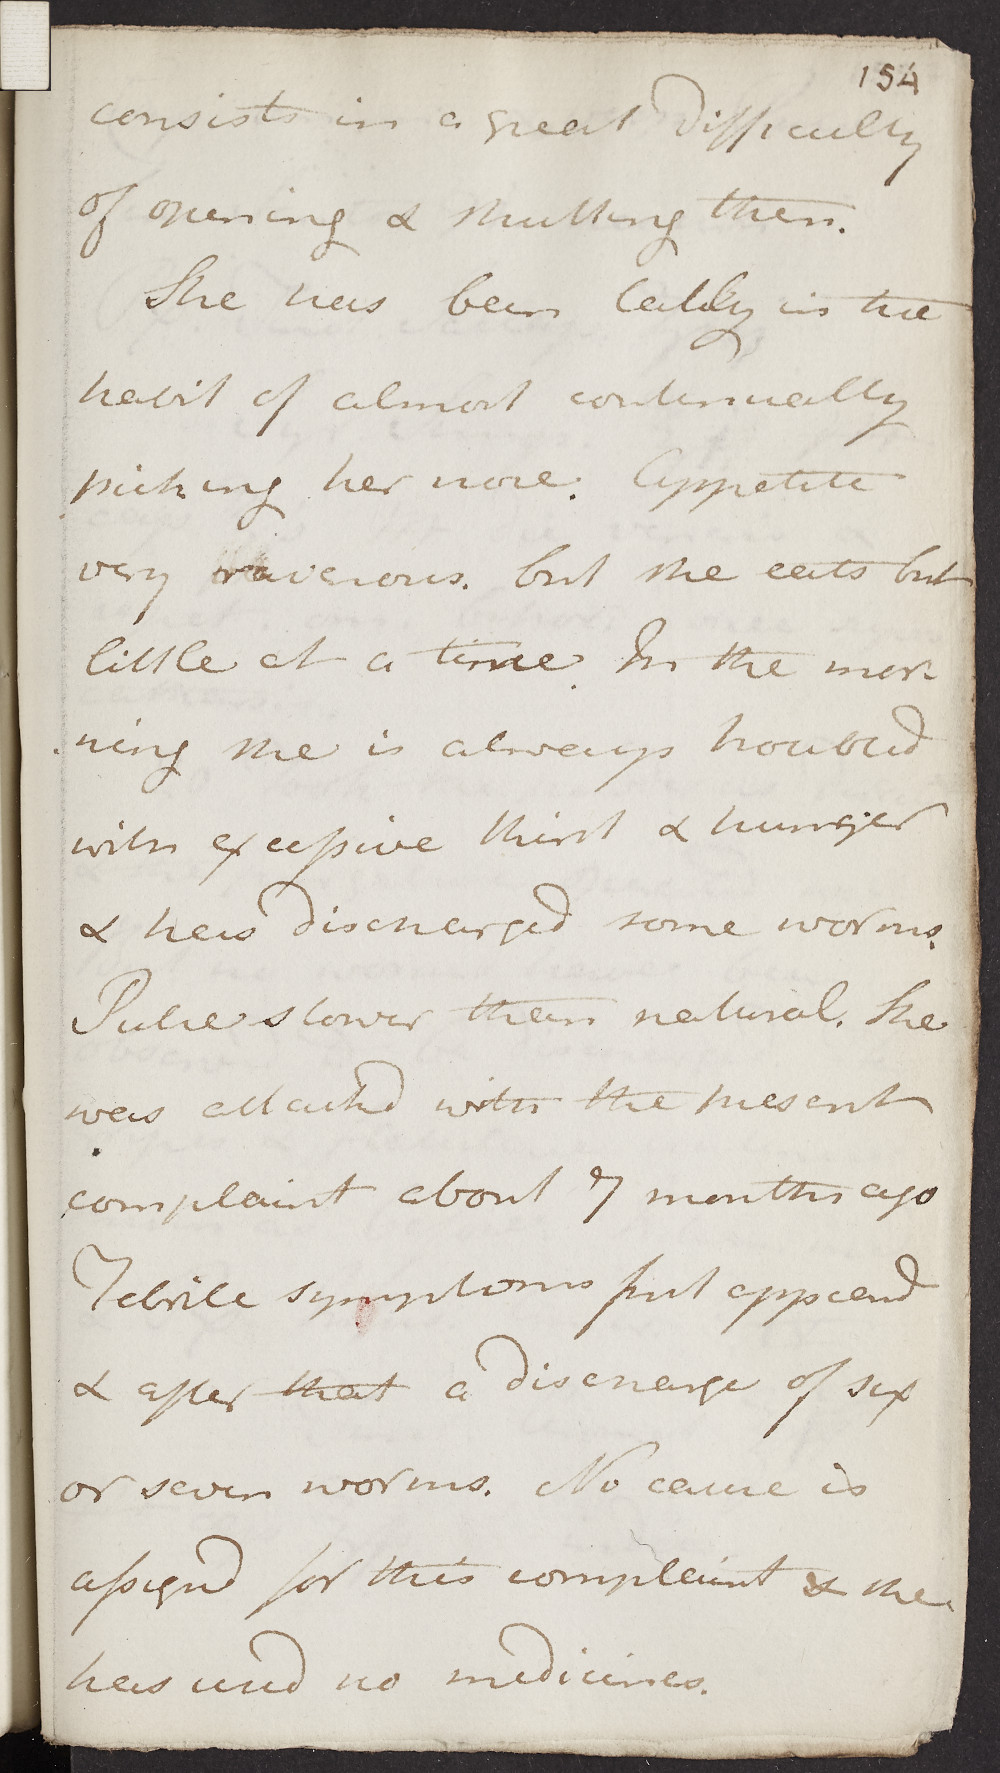 154
consists in a great difficulty
of opening & shutting them.
She has been lately in the
habit of almost continually
picking her nose. Appetite
very ravenous. but she eats but
little at a time. In the mor-
ning she is always troubled
with excessive thirst & hunger
& has discharged some worms.
Pulse slower than natural. She
was attackd with the present
complaint about 7 months ago
Febrile symptoms first appeard
& after that a discharge of six
or seven worms. No cause is
assignd for this complaint & she
has used no medicines.